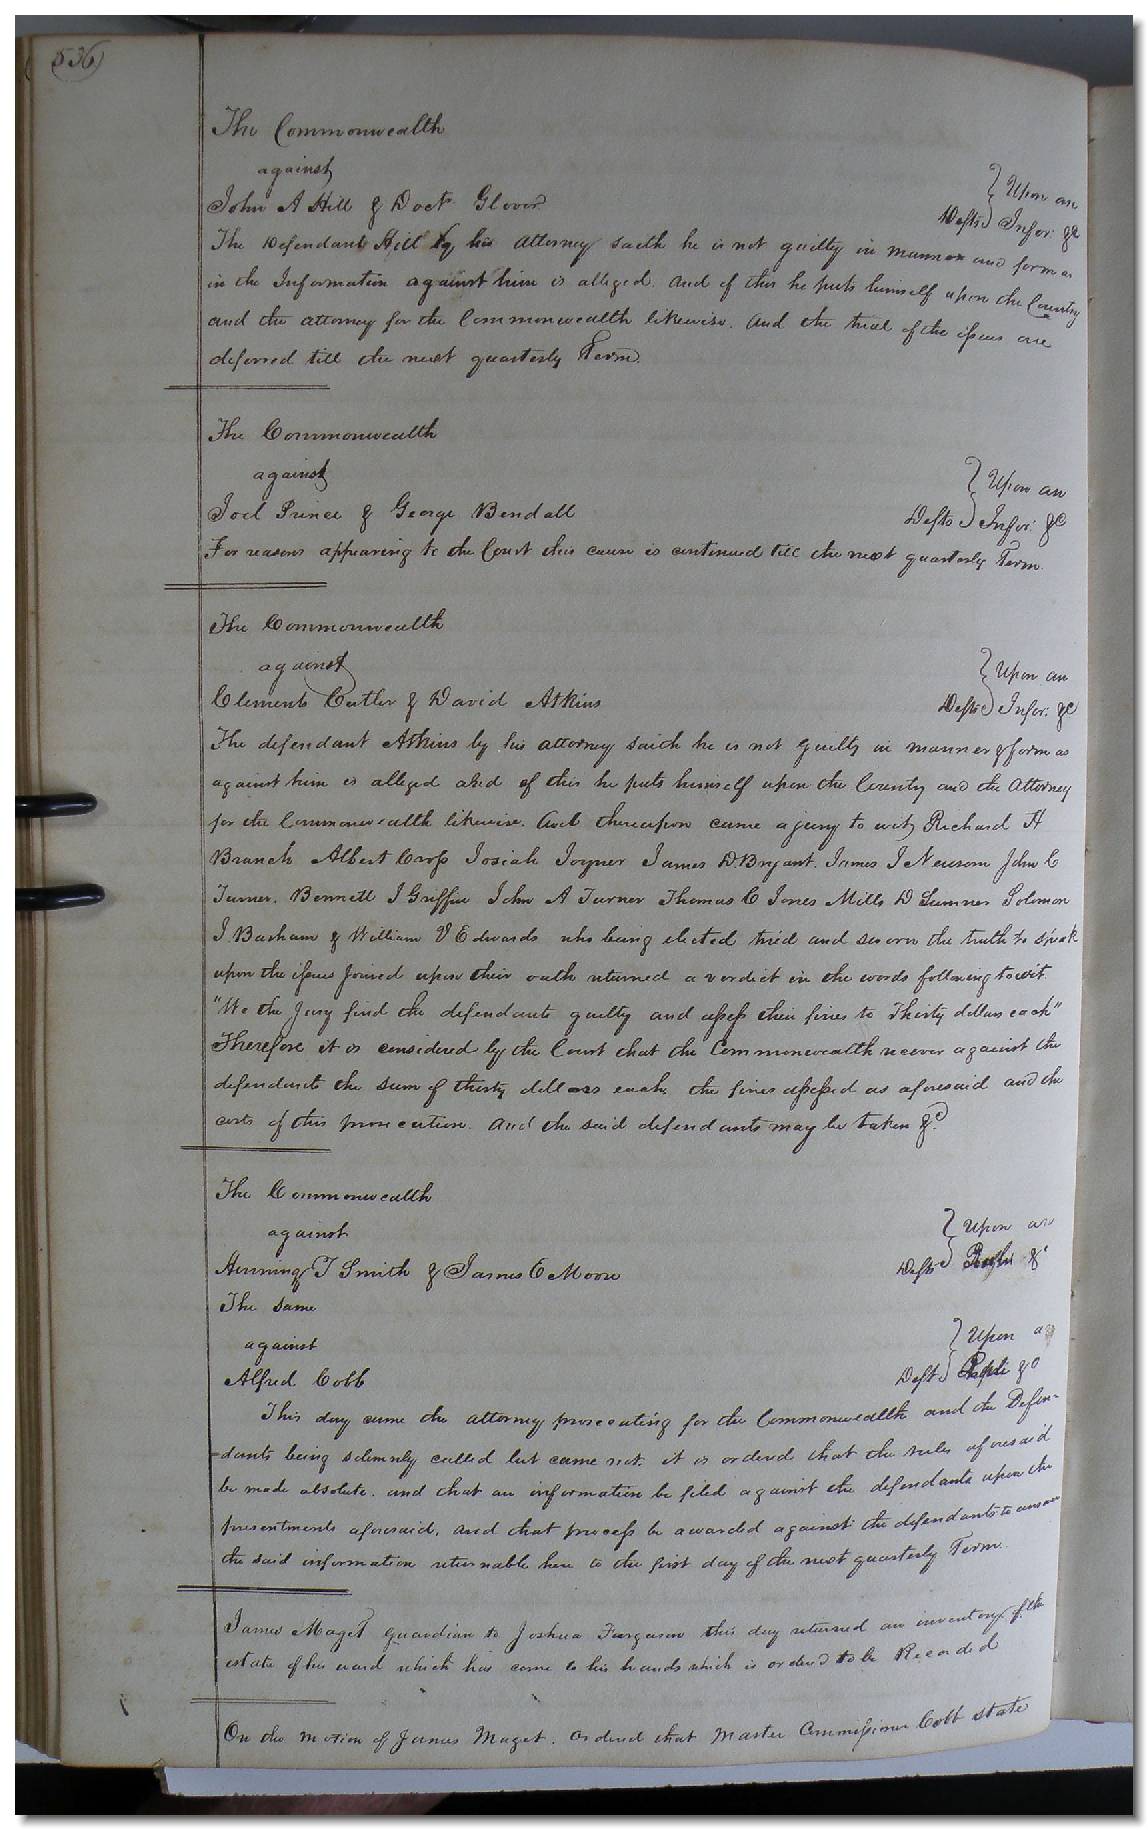 536
The Commonwealth
against
John A Hill & Doct Glover
} Upon an
Defts } Infor: &c
The Defendant Hill by his attorney saith he is not guilty in manner and form as
in the Information against him is alleged. and of this he puts himself upon the Country
and the attorney for the Commonwealth likewise. And the trial of the issues are
deferred till the next quarterly Term.
The Commonwealth
against
Joel Prince & George Bendall
} Upon an
Defts } Infor: &c
For reasons appearing to the Court this cause is continued till the next quarterly Term.
The Commonwealth
against
Clements Cutler & David Atkins
} Upon an
Defts } Infor: &c
The defendant Atkins by his attorney saith he is not guilty in manner & form as
against him is alleged and of this he puts himself upon the Country and the Attorney
for the Commonwealth likewise. And thereupon came a jury to wit, Richard H
Branch Albert Cross Josiah Joyner James D Bryant. James J Newsom John C
Turner. Bennett J Griffin John A Turner Thomas C Jones Mills D Sumner Solomon
J Basham & William V Edwards who being elected tried and sworn the truth to speak
upon the issues joined upon their oath returned a verdict in the words following to wit.
"We the Jury find the defendants guilty and assess their fines to Thirty dollars each"
Therefore it is considered by the Court that the Commonwealth recover against the
defendants the sum of thirty dollars each, the fines assessed as aforesaid and the
costs of this prosecution. and the said defendants may be taken &c.
The Commonwealth
against
Henning T Smith & James E Moore
} Upon an
Defts } &c
The same
against
Alfred Cobb
} Upon a
Deft } &c
This day came the attorney prosecuting for the Commonwealth and the Defen-
-dants being solemnly called but came not. it is ordered that the rules aforesaid
be made absolute. and that an information be filed against the defendants upon the
presentments aforesaid. and that process be awarded against the defendants to answer
the said information returnable here to the first day of the next quarterly Term.
James Maget guardian to Joshua Furguson this day returned an inventory of the
estate of his ward which has come to his hands which is ordered to be Recorded
On the motion of James Maget. Ordered that Master Commissioner Cobb state